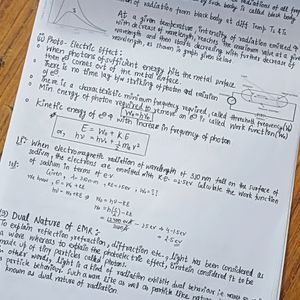 radiation of all
such body is called black body.
of radiation from black body at diff Temp T₁ & T₂
At a given temperature, intensity of radiation emitted
with decrease of wavelength, reaches maximum value at a given
wavelength and then starts decreasing with further decrease of
wavelength, as shown in graph given below.
(ii) Photo-Electric Effect:
when photons of sufficient energy hits the metal surface
then e⊖ comes out of the metal surface.
There is no time lag b/w striking of photon and emission
of e⊖.
There is a characteristic minimum frequency required called threshold frequency(ν₀)
Min. energy of photon required to remove an e⊖ is called work function(W₀)
W₀ = hν₀
Kinetic energy of e⊖ ∝ with increase in frequency of photon
E = W₀ + KE
or, hν = hν₀ + ½mv²
When electromagnetic radiation of wavelength of 310 nm fall on the surface of
sodium, the electrons are emitted with K.E = 2.5ev. Calculate the work function
of sodium in ev.
Given,
We know, E = W₀ + KE
hν = W₀ + KE
W₀ = hν - KE
= 2.5ev
(3) Dual Nature of EMR:
To explain reflection, refraction, diffraction etc., light has been considered as
a wave whereas to explain the photoelectric effect, Einstein considered it to be
made up of tiny particles called photon.
In other words, light is a kind of radiation exhibits dual behaviour i.e wave
particle behaviour. Such a wave like as well as particle like nature
known as dual nature of radiation.